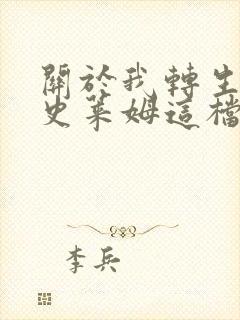 關於我轉生
史萊姆這檔
李兵